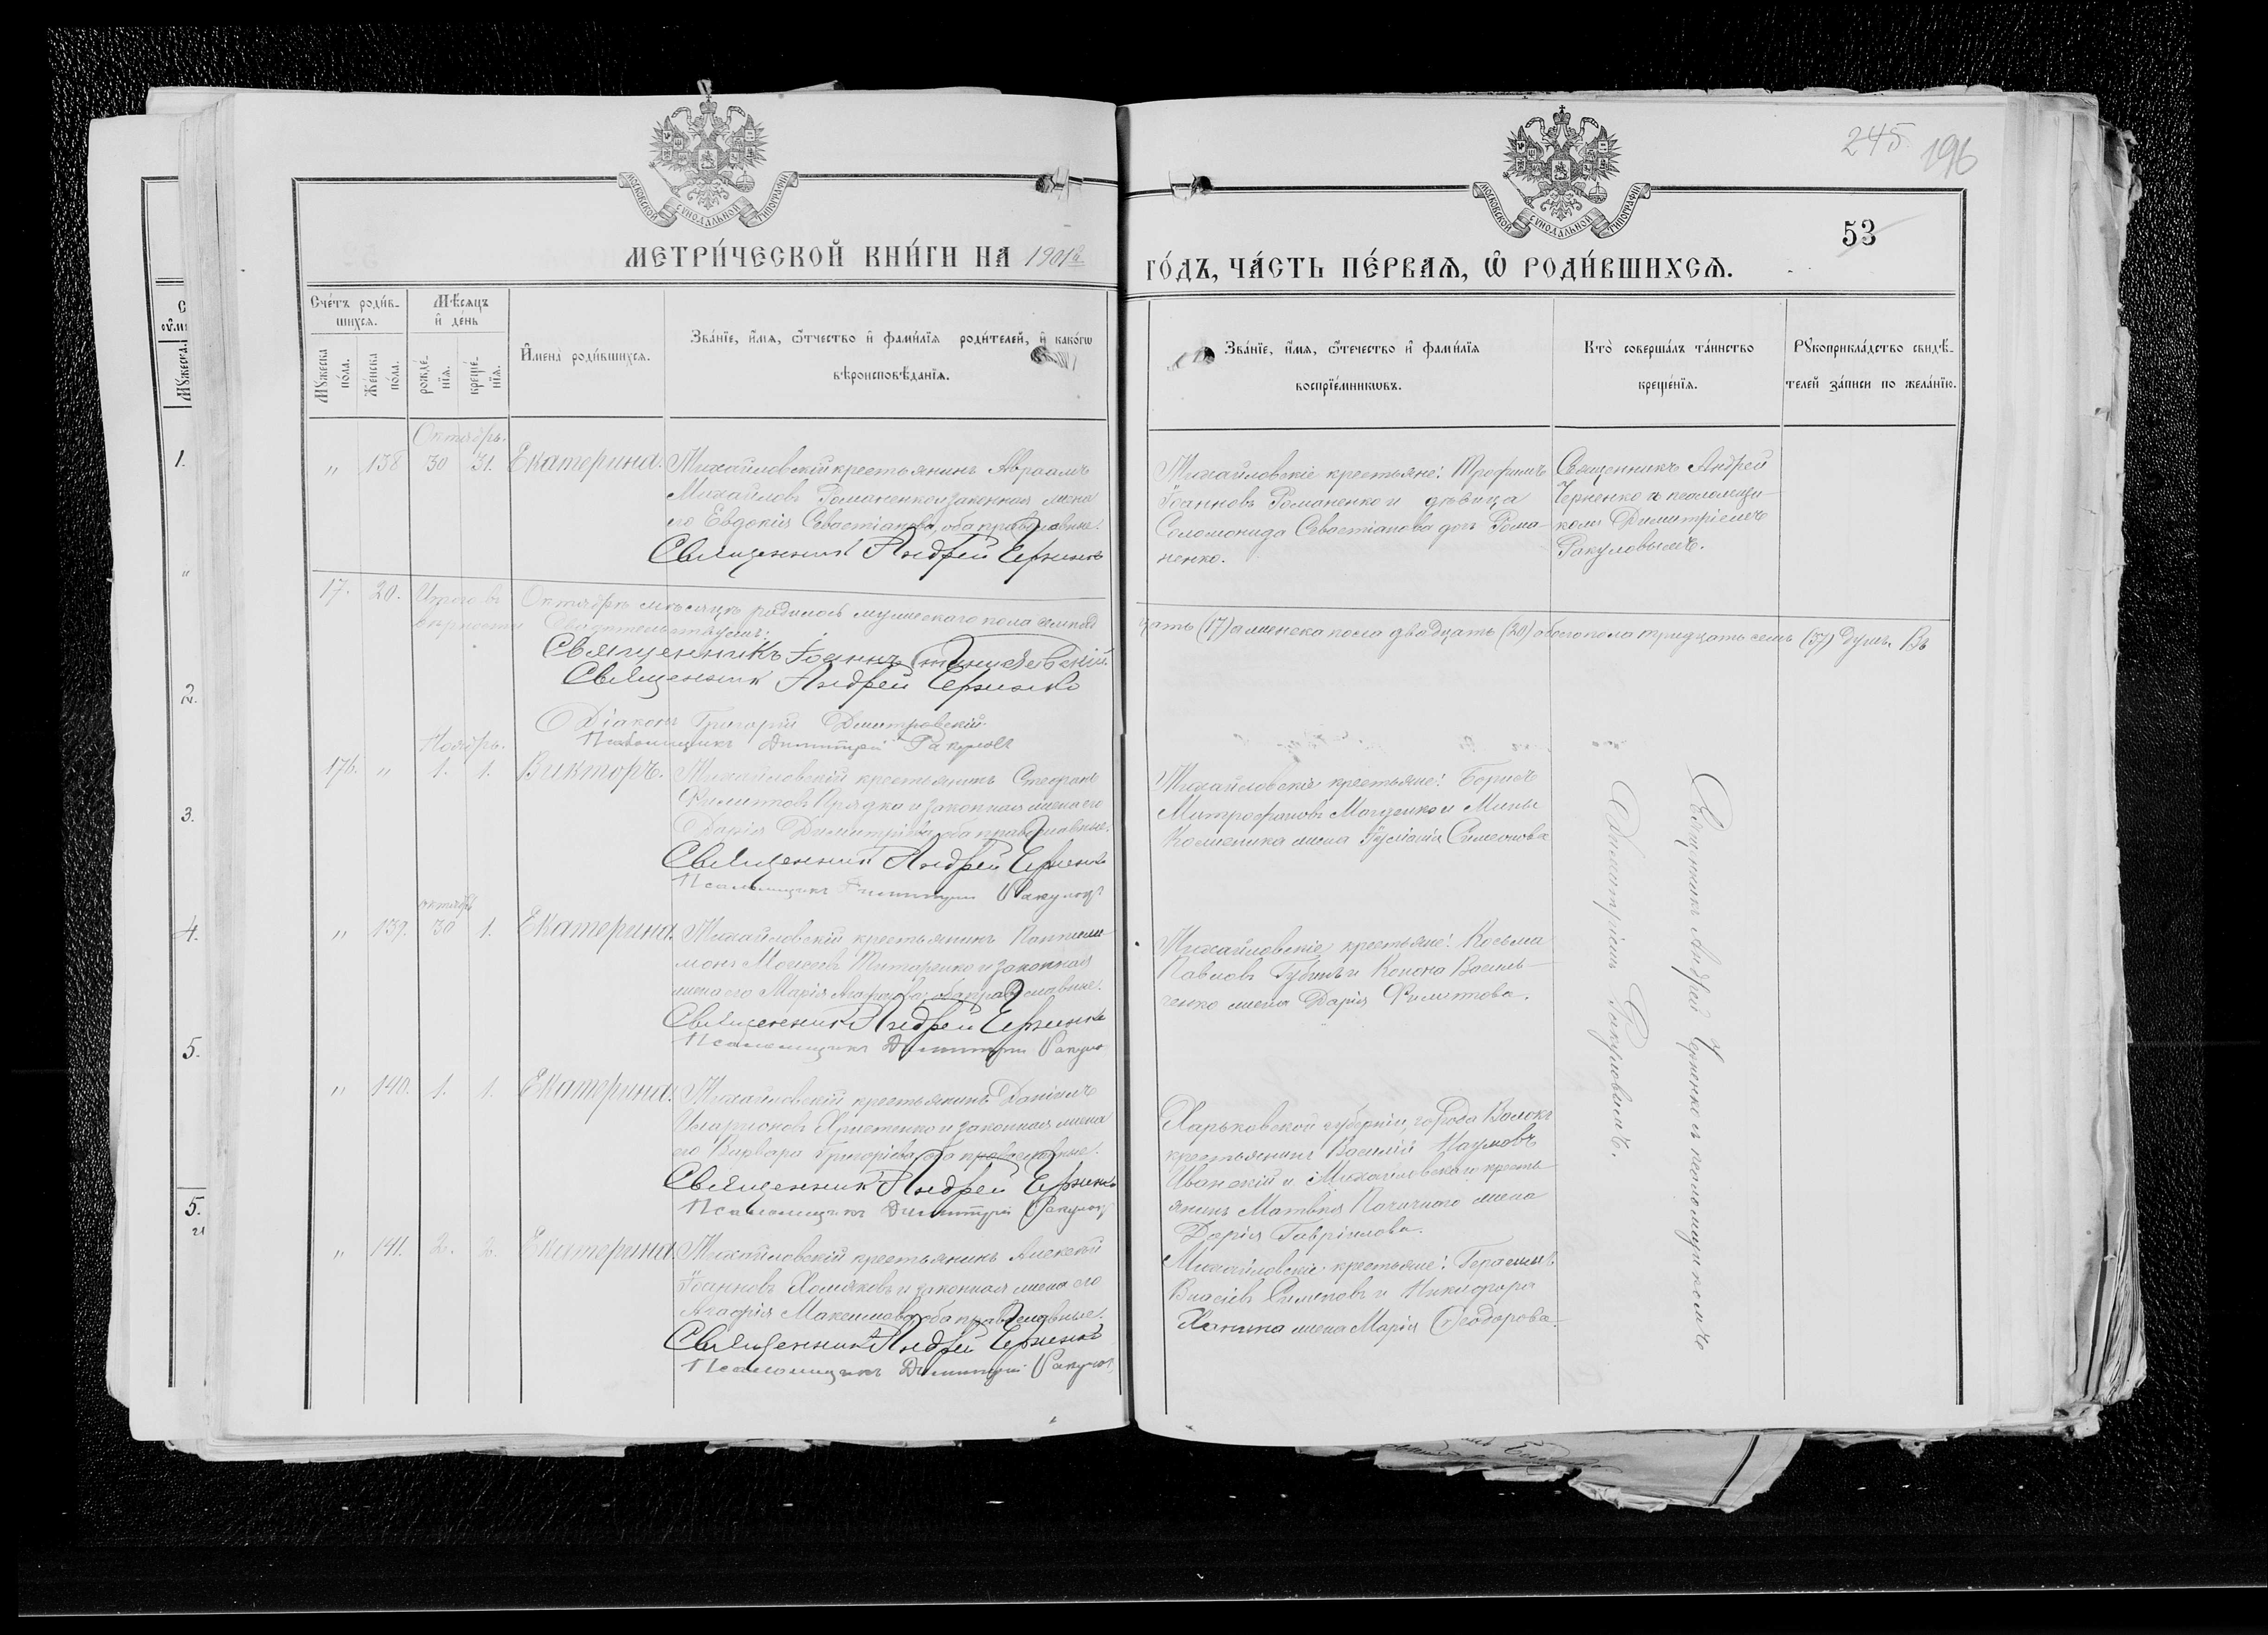 245. 196
53
МОСКОВСКОЙ СѴНОДАЛЬНОЙ ТИПОГРАФІИ
МОСКОВСКОЙ СѴНОДАЛЬНОЙ ТИПОГРАФІИ
МЕТРИ́ЧЕСКОЙ КНИ́ГИ НА 1901й
ГО́ДЪ, ЧА́СТЬ ПЕ́РВАѦ, Ѡ҆ РОДИ́ВШИХСѦ.
Сче́тъ роди́в-
шихсѧ.
Мѣ́сѧцъ
и҆ де́нь
Мꙋжеска
по́ла.
Же́нска
по́ла.
рожде́-
нїѧ.
креще́-
нїѧ.
И҆мена̀ роди́вшихсѧ.
Зва́нїе, и҆́мѧ, ѻ҆́тчество и҆ фами́лїѧ роди́телей, и҆ како́гѡ
вѣроисповѣ́данїѧ.
Зва́нїе, и҆́мѧ, ѻ҆те́чество и҆ фами́лїѧ
воспрїе́мникѡвъ.
Кто̀ соверша́лъ та́инство
креще́нїѧ.
Рꙋкоприкла́дство свидѣ́-
телей за́писи по жела́нїю.
Октябрь.
" 138 30 31. Екатерина. Михайловскій крестьянинъ Авраамъ
Михайловъ Романенко и законная жена
его Евдокія Севастіанова, оба православные.
Священникъ Андрей Черненко
Михайловскіе крестьяне: Трофимъ
Іоанновъ Романенко и дѣвица
Соломонида Севастіанова дочь Рома-
ненко.
Священникъ Андрей
Черненко съ псаломщи-
комъ Димитріемъ
Ракуловымъ.
17. 20. Итого въ Октябрѣ мѣсяцѣ родилось мужескаго пола семнад
цать (17) а женска пола двадцать (20) обоего пола тридцать семь (37) душъ. Въ
вѣрности свидѣтельствуемъ:
Священникъ Іоаннъ
Священникъ Андрей Черненко
Діаконъ Григорій Дмитровскій
Псаломщикъ Димитрій Ракуловъ
Ноябрь.
176. " 1. 1. Викторъ. Михайловскій крестьянинъ Стефанъ
Филиповъ Прядка и законная жена его
Дарія Димитріева, оба православные.
Священникъ Андрей Черненко
Псаломщикъ Димитрій Ракуловъ
Михайловскіе крестьяне: Борисъ
Митрофановъ и Мины
жена Симеонова
октябрь
" 139. 30 1. Екатерина. Михайловскій крестьянинъ Пантелеи-
монъ Моисеевъ Титаренко и законная
жена его Марія оба православные.
Священникъ Андрей Черненко
Псаломщикъ Димитрій Ракулов
Михайловскіе крестьяне: Косьма
Павловъ Губинъ и Конона Василь-
ченко жена Дарія Филиппова.
" 140. 1. 1. Екатерина. Михайловскій крестьянинъ Даніилъ
Иларіоновъ Христенко и законная жена
его Варвара Григоріева, оба православные.
Священникъ Андрей Черненко
Псаломщикъ Димитрій Ракуловъ
Харьковской губерніи, города Волокъ
крестьянинъ Василій Наумовъ
и Михайловскаго кресть-
янинъ Матвѣя жена
Дарія Гавріилова.
" 141. 2. 2. Екатерина. Михайловскій крестьянинъ Алексѣй
Іоанновъ Хомяковъ и законная жена его
Агафія Максимова, оба православные.
Священникъ Андрей Черненко
Псаломщикъ Димитрій Ракулов
Михайловскіе крестьяне: Герасимъ
Власіевъ и Никифора
жена Марія Ѳеодорова.
Священникъ Андрей Черненко съ псаломщикомъ
Димитріемъ Ракуловымъ.
1.
"
2.
3.
4.
5.
5.